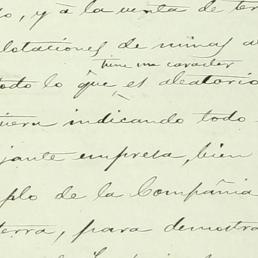 o, y á la venta de ter
lotaciones de minas a
tiene un caracter
todo lo que es aleatorio
uiera indicando todo
jante empresa, bien
plo de la Compañia
terra, para demostra